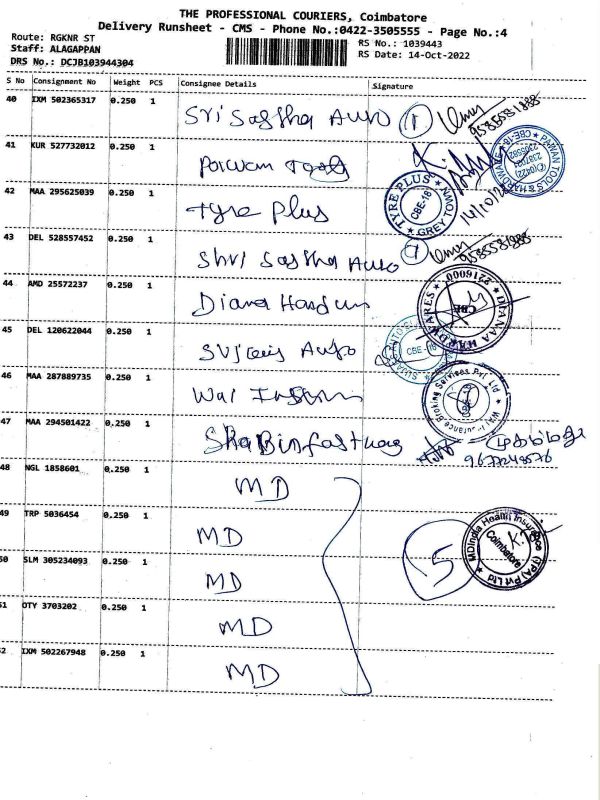 THE PROFESSIONAL COURIERS, Coimbatore
Delivery Runsheet - CMS - Phone No.:0422-3505555 - Page No.:4
Route: RGKNR ST
Staff: ALAGAPPAN
DRS No.: DCJB103944304
RS No.: 1039443
RS Date: 14-Oct-2022
S No Consignment No Weight PCS Consignee Details Signature
40 IXM 502365317 0.250 1 Sri Sastha Auto 1
9585581885
41 KUR 527732012 0.250 1 Paiwan Tools
PAIWAN TOOLS & HARDWARE CBE-18
42 MAA 295625039 0.250 1 Tyre Plus
TYRE PLUS GREY TOWN CBE-18
14/10/
43 DEL 528557452 0.250 1 Shri Sastha Auto 1
44 AMD 25572237 0.250 1 Diana
DHANAA HARDWARES CBE 2216000
45 DEL 120622044 0.250 1 Auto
CBE - 18
46 MAA 287889735 0.250 1 Wai
Insurance Broking Services Pvt Ltd
47 MAA 294501422 0.250 1
48 NGL 1858601 0.250 1 MD
49 TRP 5036454 0.250 1 MD
5
MDIndia Health Insurance (TPA) Pvt Ltd Coimbatore
50 SLM 305234093 0.250 1 MD
51 OTY 3703202 0.250 1 MD
52 IXM 502267948 0.250 1 MD